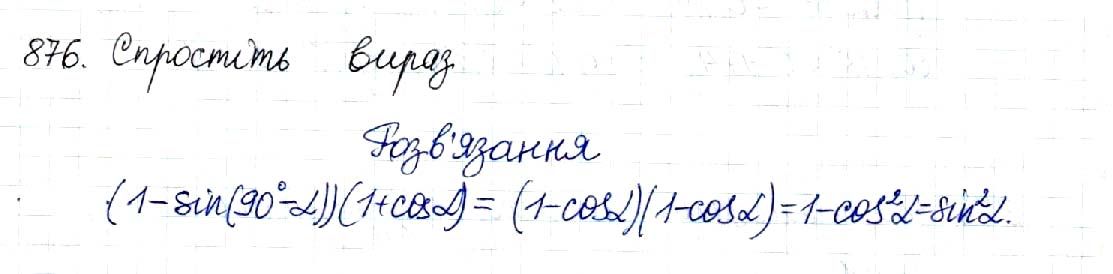 876. Спростіть вираз
Розв'язання
(1-sin(90°-α))(1+cosα) = (1-cosα)(1-cosα)=1-cos²α=sin²α.